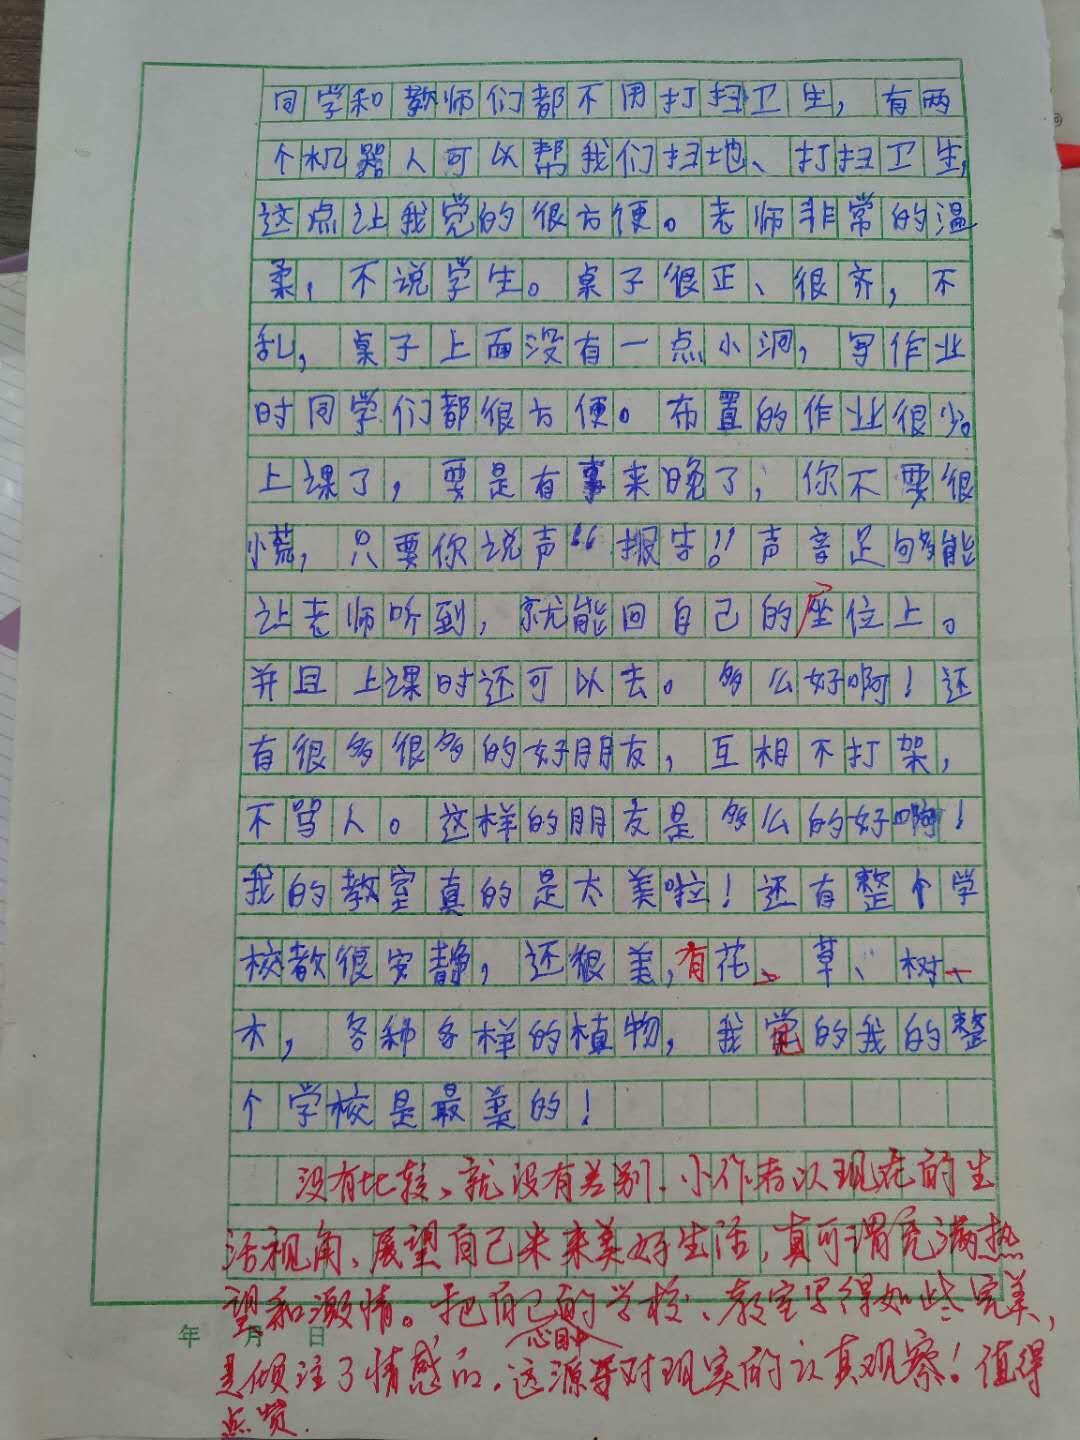 同学和教师们都不用打扫卫生，有两
个机器人可以帮我们扫地、打扫卫生，
这点让我觉的很方便。老师非常的温
柔，不说学生。桌子很正、很齐，不
乱，桌子上面没有一点小洞，写作业
时同学们都很方便。布置的作业很少。
上课了，要是有事来晚了，你不要很
慌，只要你说声“报告！”声音足够能
让老师听到，就能回自己的座位上。
并且上课时还可以去。多么好啊！还
有很多很多的好朋友，互相不打架，
不骂人。这样的朋友是多么的好啊！
我的教室真的是太美啦！还有整个学
校都很安静，还很美，有花、草、树、
木，各种各样的植物，我觉的我的整
个学校是最美的！
没有比较、就没有差别。小作者以现在的生
活视角、展望自己未来美好生活，真可谓充满热
望和激情。把自己心目中的学校、教室写得如此完美，
是倾注了情感的。这源于对现实的认真观察！值得
点赞.
年 月 日